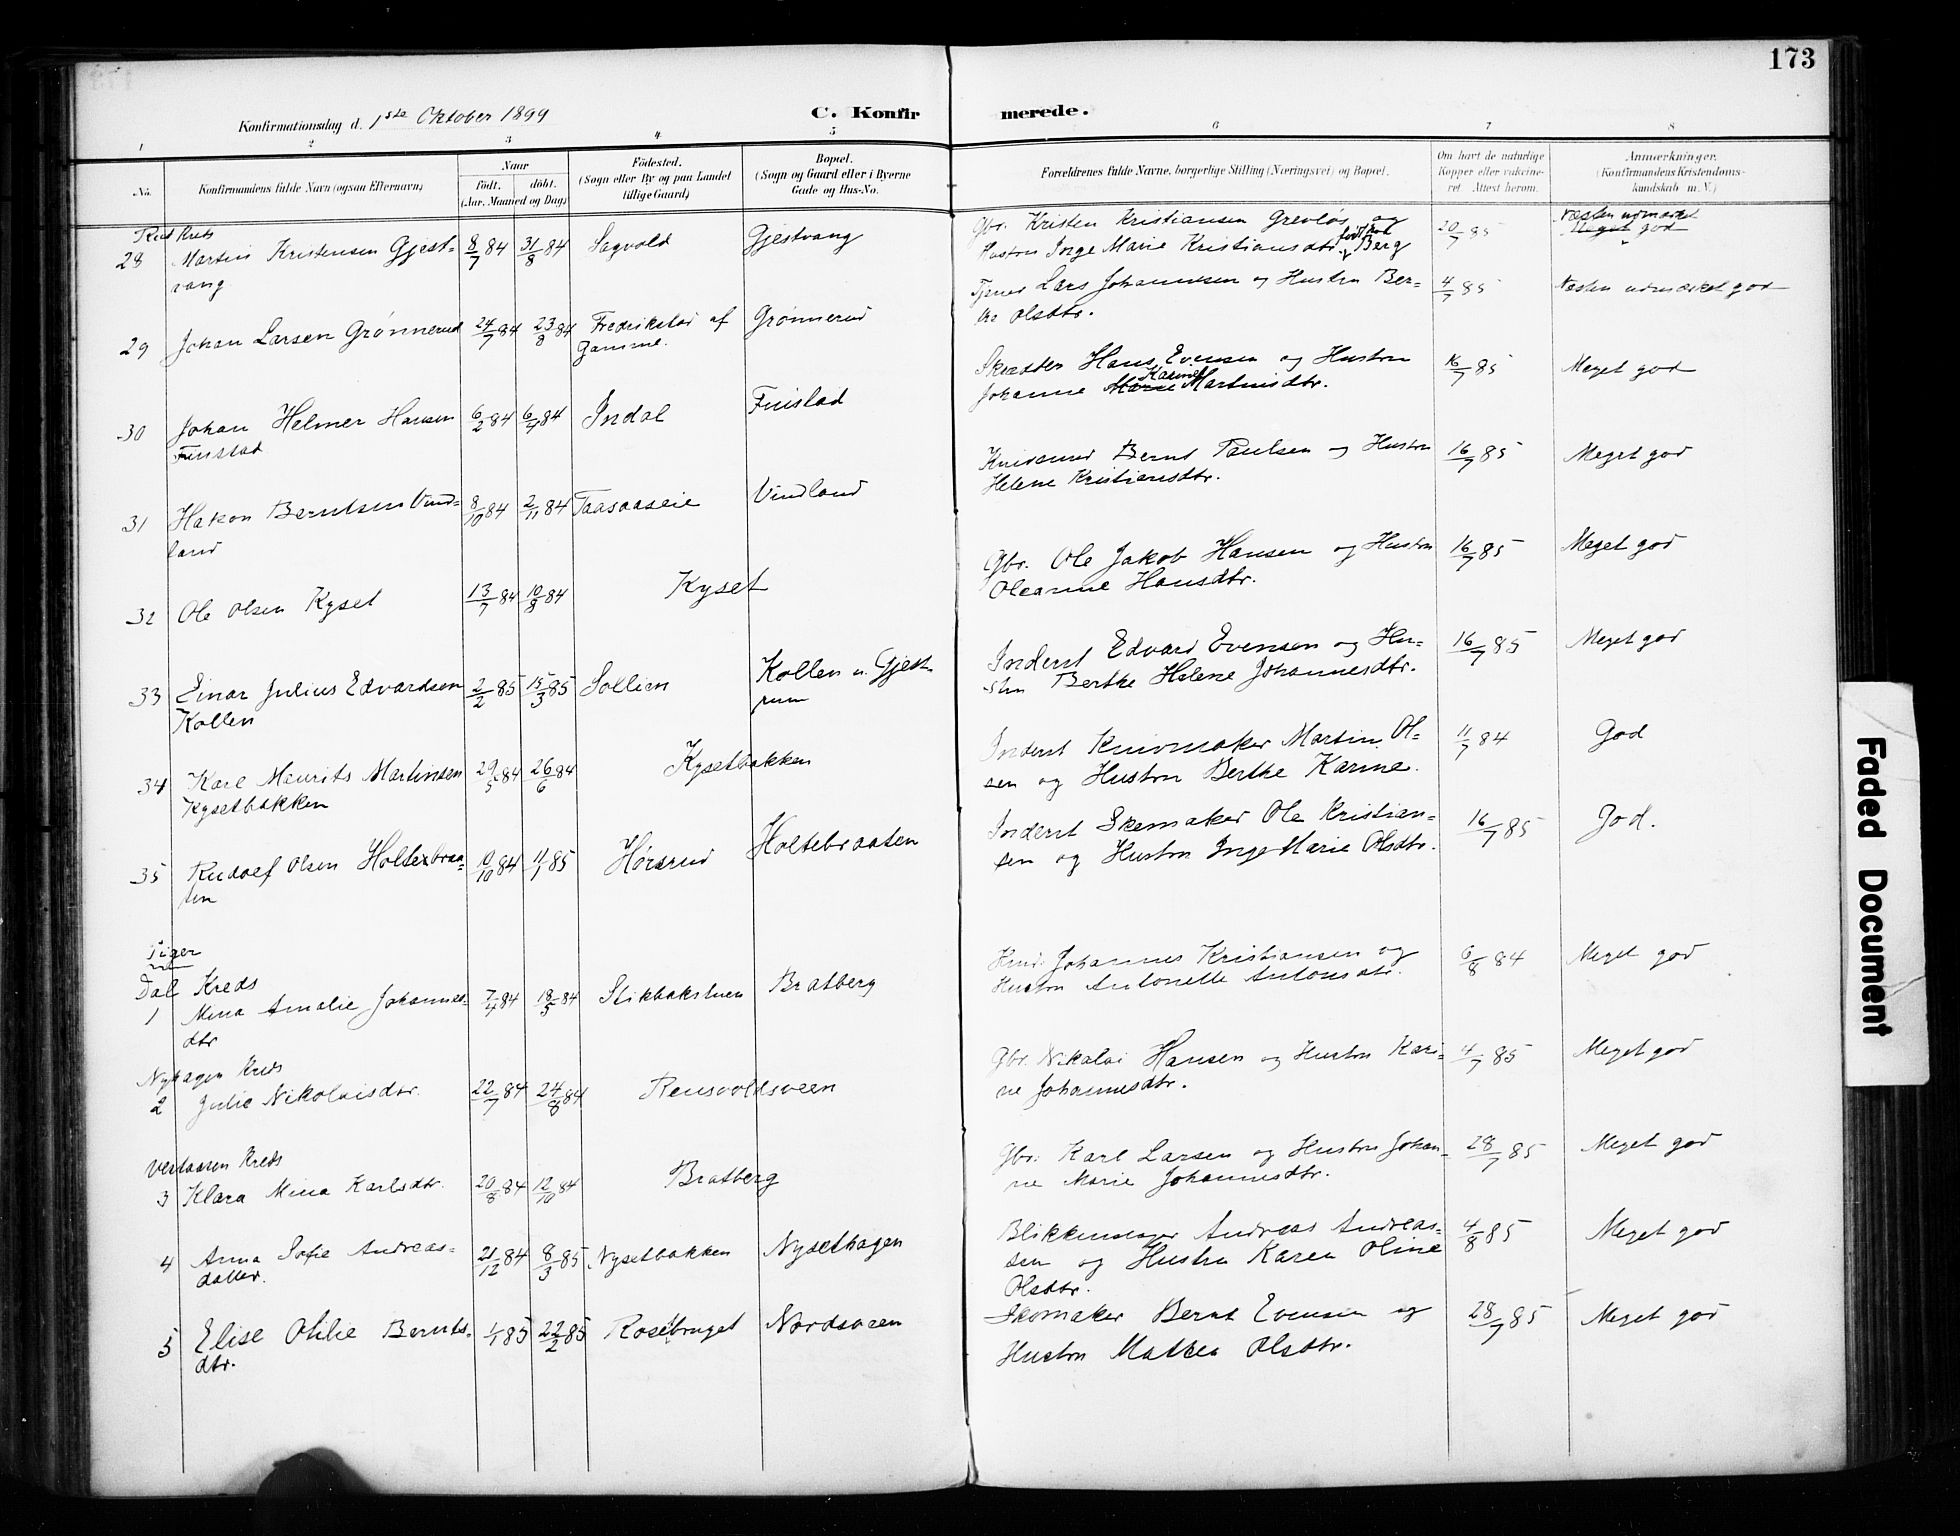 173
Konfirmationsdag d. 1ste Oktober 1899
C. Konfirmerede.
1 2 3 4 5 6 7 8
No.
Konfirmandens fulde Navn (ogsaa Efternavn)
Naar
födt. döbt.
(Aar, Maaned og Dag)
Födested.
(Sogn eller By og paa Landet
tillige Gaard)
Bopæl.
(Sogn og Gaard eller i Byerne
Gade og Hus-No.
Forældrenes fulde Navne, borgerlige Stilling (Næringsvei) og Bopæl.
Om havt de naturlige
Kopper eller vakcineret. Attest herom.
Anmærkninger.
(Konfirmandens Kristendomskundskab m. V.)
Kreds
28 Martin Kristensen Gjestvang 8/7 84 31/8 84 Sagvold Gjestvang
Gbr. Kristen Kristiansen Grevløs og
Hustru Inge Marie Kristiansdtr. født Berg
20/7 85 Næsten udmærket god
29 Johan Larsen Grönnerud 24/7 84 23/8 84 Fredrikstad af Gamme. Grönnerud
Tjener Lars Johannesen og Hustru Berthe Olsdtr.
4/7 85 Næsten udmærket god
30 Johan Helmer Hansen Finstad 6/2 84 6/4 84 Indal Finstad
Skrædder Hans Evensen og Hustru
Johanne Karine Martinsdtr.
16/7 85 Meget god
31 Hakon Berntsen Vindland 8/10 84 2/11 84 Taasaaseie Vindland
Bernt Paulsen og Hustru
Helene Kristiansdtr.
16/7 85 Meget god
32 Ole Olsen Kyset 13/7 84 10/8 84 Kyset
Gbr. Ole Jakob Hansen og Hustru
Oleanne Hansdtr.
16/7 85 Meget god
33 Einar Julius Edvardsen Kollen 2/2 85 15/3 85 Sollien Kollen u. Gjestrum
Inderst Edvard Evensen og Hustru Berthe Helene Johannesdtr.
16/7 85 Meget god
34 Karl Maurits Martinsen Kysetbakken 29/5 84 26/6 84 Kysetbakken
Inderst Knivmaker Martin Olsen og Hustru Berthe Karine.
11/7 84 God
35 Rudolf Olsen Holtebraaten 10/10 84 11/1 85 Hörsrud Holtebraaten
Inderst Skomaker Ole Kristiansen og Hustru Inge Marie Olsdtr.
16/7 85 God.
Piger
Dal Kreds
1 Mina Amalie Johannesdtr 7/4 84 18/5 84 Stikbakstuen Bratberg
Johannes Kristiansen og
Hustru Antonette Antonsdtr.
6/8 84 Meget god
Nyhagen Kreds
2 Julie Nikolaisdtr. 22/7 84 24/8 84 Rensvoldsveen
Gbr. Nikolai Hansen og Hustru Karine Johannesdtr.
4/7 85 Meget god
Vestaasen Kreds
3 Klara Mina Karlsdtr. 20/8 84 12/10 84 Bratberg
Gbr. Karl Larsen og Hustru Johanne Marie Johannesdtr.
28/7 85 Meget god
4 Anna Sofie Andreasdatter. 21/12 84 8/3 85 Nysetbakken Nysethagen
Blikkenslager Andreas Andreassen og Hustru Karen Oline
Olsdtr.
4/8 85 Meget god
5 Elise Otilie Berntsdtr. 1/1 85 22/2 85 Rosebruget Nordsveen
Skomaker Bernt Evensen og
Hustru Mathea Olsdtr.
28/7 85 Meget god
Faded Document